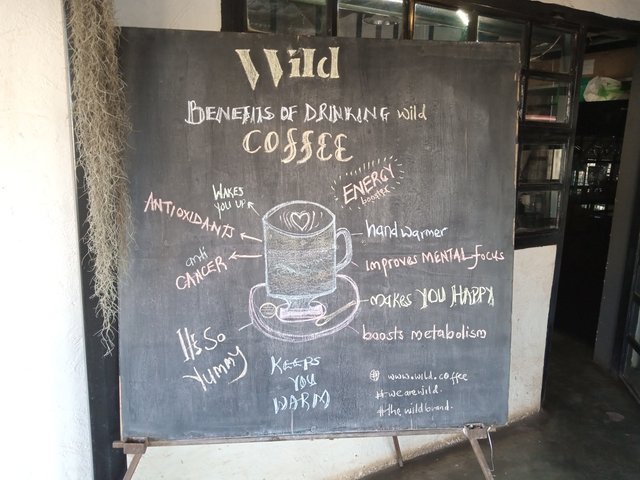 Wild
BENEFITS OF DRINKING wild
COFFEE
ENERGY
booster
WAKES
YOU UP
ANTIOXIDANTS
anti
CANCER
hand warmer
improves MENTAL focus
makes YOU HAPPY
boosts metabolism
It's So
YUMMY
KEEPS
YOU
WARM
www.wild.coffee
#wearewild.
#thewildbrand.